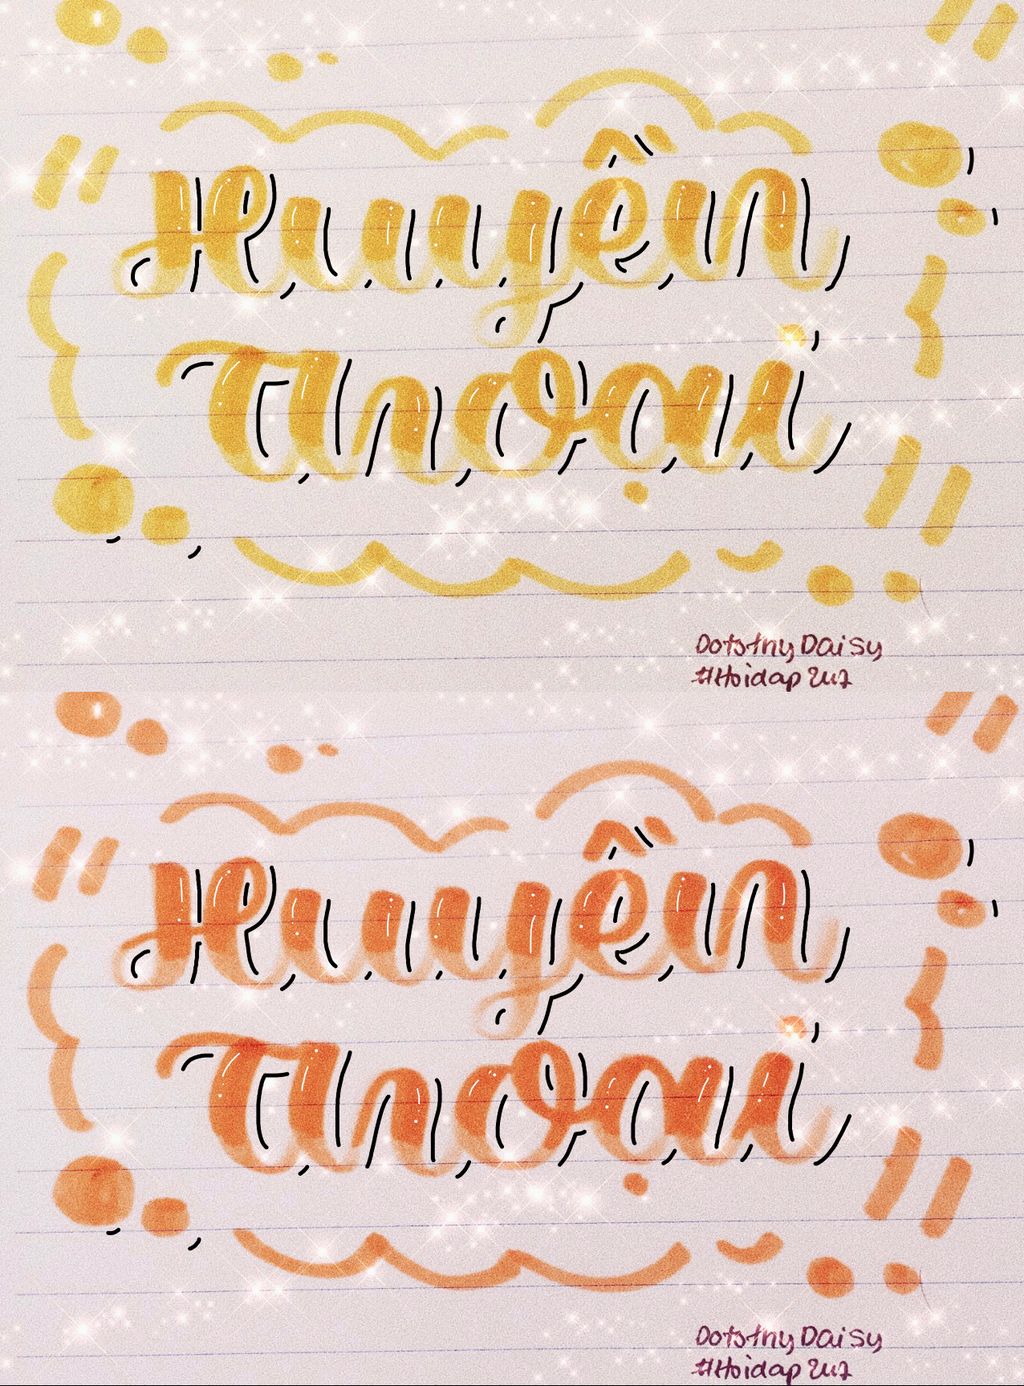 Huyền
Thoại
Dotothy Daisy
#Hoidap247
Huyền
Thoại
Dotothy Daisy
#Hoidap247